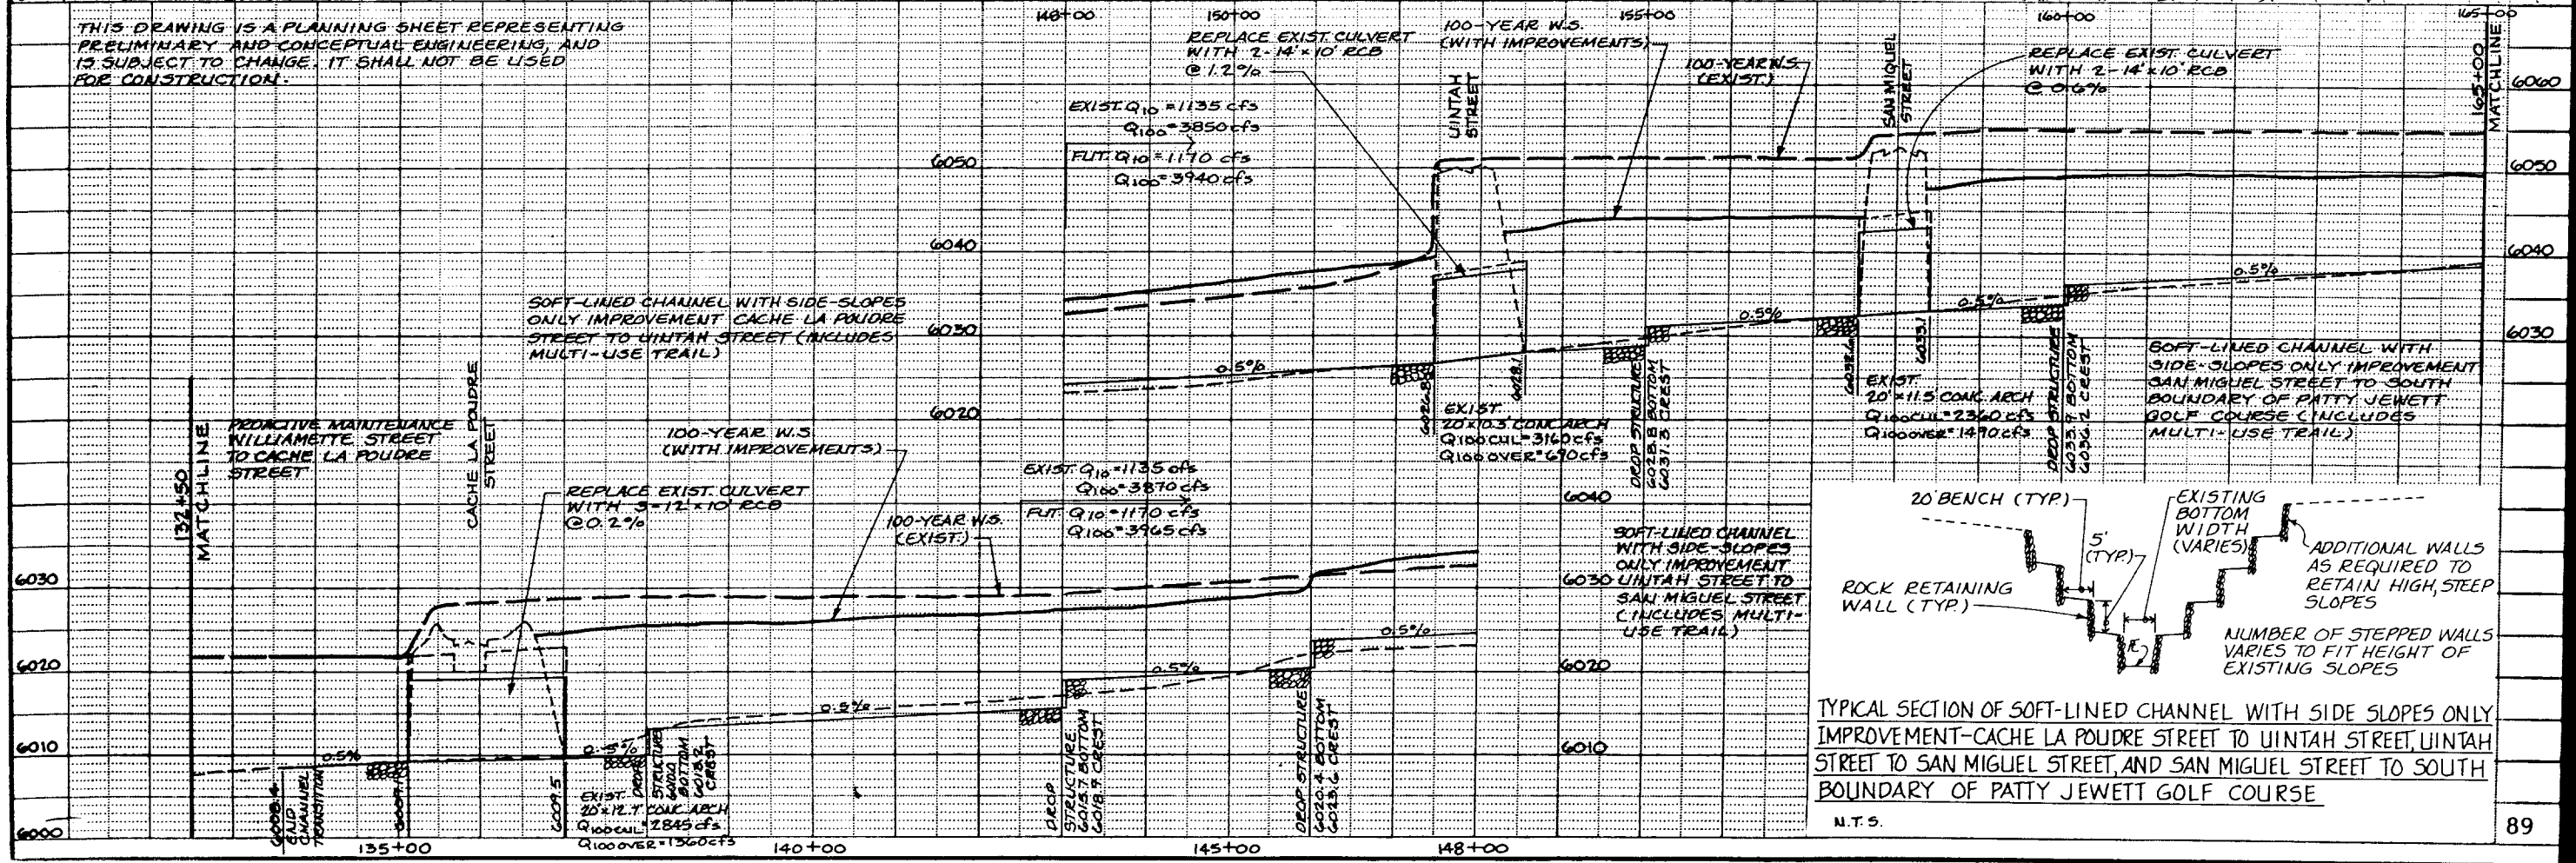 THIS DRAWING IS A PLANNING SHEET REPRESENTING
PRELIMINARY AND CONCEPTUAL ENGINEERING, AND
IS SUBJECT TO CHANGE. IT SHALL NOT BE USED
FOR CONSTRUCTION.
148+00
150+00
155+00
160+00
165+00
REPLACE EXIST. CULVERT
WITH 2-14'x10' RCB
@ 1.2%
100-YEAR W.S.
(WITH IMPROVEMENTS)
UINTAH
STREET
100-YEAR W.S.
(EXIST.)
SAN MIQUEL
STREET
REPLACE EXIST. CULVERT
WITH 2-14'x10' RCB
@ 0.6%
165+00
MATCHLINE
6060
6050
6040
6030
EXIST. Q10 = 1135 cfs
Q100 = 3850 cfs
FUT. Q10 = 1170 cfs
Q100 = 3940 cfs
6050
6040
6030
6020
SOFT-LINED CHANNEL WITH SIDE-SLOPES
ONLY IMPROVEMENT CACHE LA POUDRE
STREET TO UINTAH STREET (INCLUDES
MULTI-USE TRAIL)
0.5%
0.5%
0.5%
0.5%
6028.1
EXIST.
20'x10.3' CONC. ARCH
Q100CUL = 3160 cfs
Q100OVER = 690 cfs
DROP STRUCTURE
6028.8 BOTTOM
6031.3 CREST
6033.1
EXIST.
20'x11.5' CONC. ARCH
Q100CUL = 2360 cfs
Q100OVER = 1490 cfs
DROP STRUCTURE
6033.9 BOTTOM
6036.2 CREST
SOFT-LINED CHANNEL WITH
SIDE-SLOPES ONLY IMPROVEMENT
SAN MIGUEL STREET TO SOUTH
BOUNDARY OF PATTY JEWETT
GOLF COURSE (INCLUDES
MULTI-USE TRAIL)
132+50
MATCHLINE
PROACTIVE MAINTENANCE
WILLIAMETTE STREET
TO CACHE LA POUDRE
STREET
CACHE LA POUDRE
STREET
REPLACE EXIST. CULVERT
WITH 3-12'x10' RCB
@ 0.2%
100-YEAR W.S.
(WITH IMPROVEMENTS)
100-YEAR W.S.
(EXIST.)
EXIST. Q10 = 1135 cfs
Q100 = 3870 cfs
FUT. Q10 = 1170 cfs
Q100 = 3965 cfs
6030
6020
6010
6000
6040
6030
6020
6010
SOFT-LINED CHANNEL
WITH SIDE-SLOPES
ONLY IMPROVEMENT
UINTAH STREET TO
SAN MIGUEL STREET
(INCLUDES MULTI-
USE TRAIL)
0.5%
0.5%
0.5%
0.5%
0.5%
6008.4
END
CHANNEL
TRANSITION
6009.1
6009.5
EXIST.
20'x12.7' CONC. ARCH
Q100CUL = 2845 cfs
Q100OVER = 1360 cfs
DROP
STRUCTURE
BOTTOM
CREST
DROP
STRUCTURE
6015.7 BOTTOM
6018.9 CREST
DROP STRUCTURE
6020.4 BOTTOM
6023.6 CREST
135+00
140+00
145+00
148+00
20' BENCH (TYP.)
5'
(TYP.)
EXISTING
BOTTOM
WIDTH
(VARIES)
ADDITIONAL WALLS
AS REQUIRED TO
RETAIN HIGH, STEEP
SLOPES
ROCK RETAINING
WALL (TYP.)
NUMBER OF STEPPED WALLS
VARIES TO FIT HEIGHT OF
EXISTING SLOPES
TYPICAL SECTION OF SOFT-LINED CHANNEL WITH SIDE SLOPES ONLY
IMPROVEMENT-CACHE LA POUDRE STREET TO UINTAH STREET, UINTAH
STREET TO SAN MIGUEL STREET, AND SAN MIGUEL STREET TO SOUTH
BOUNDARY OF PATTY JEWETT GOLF COURSE
N.T.S.
89